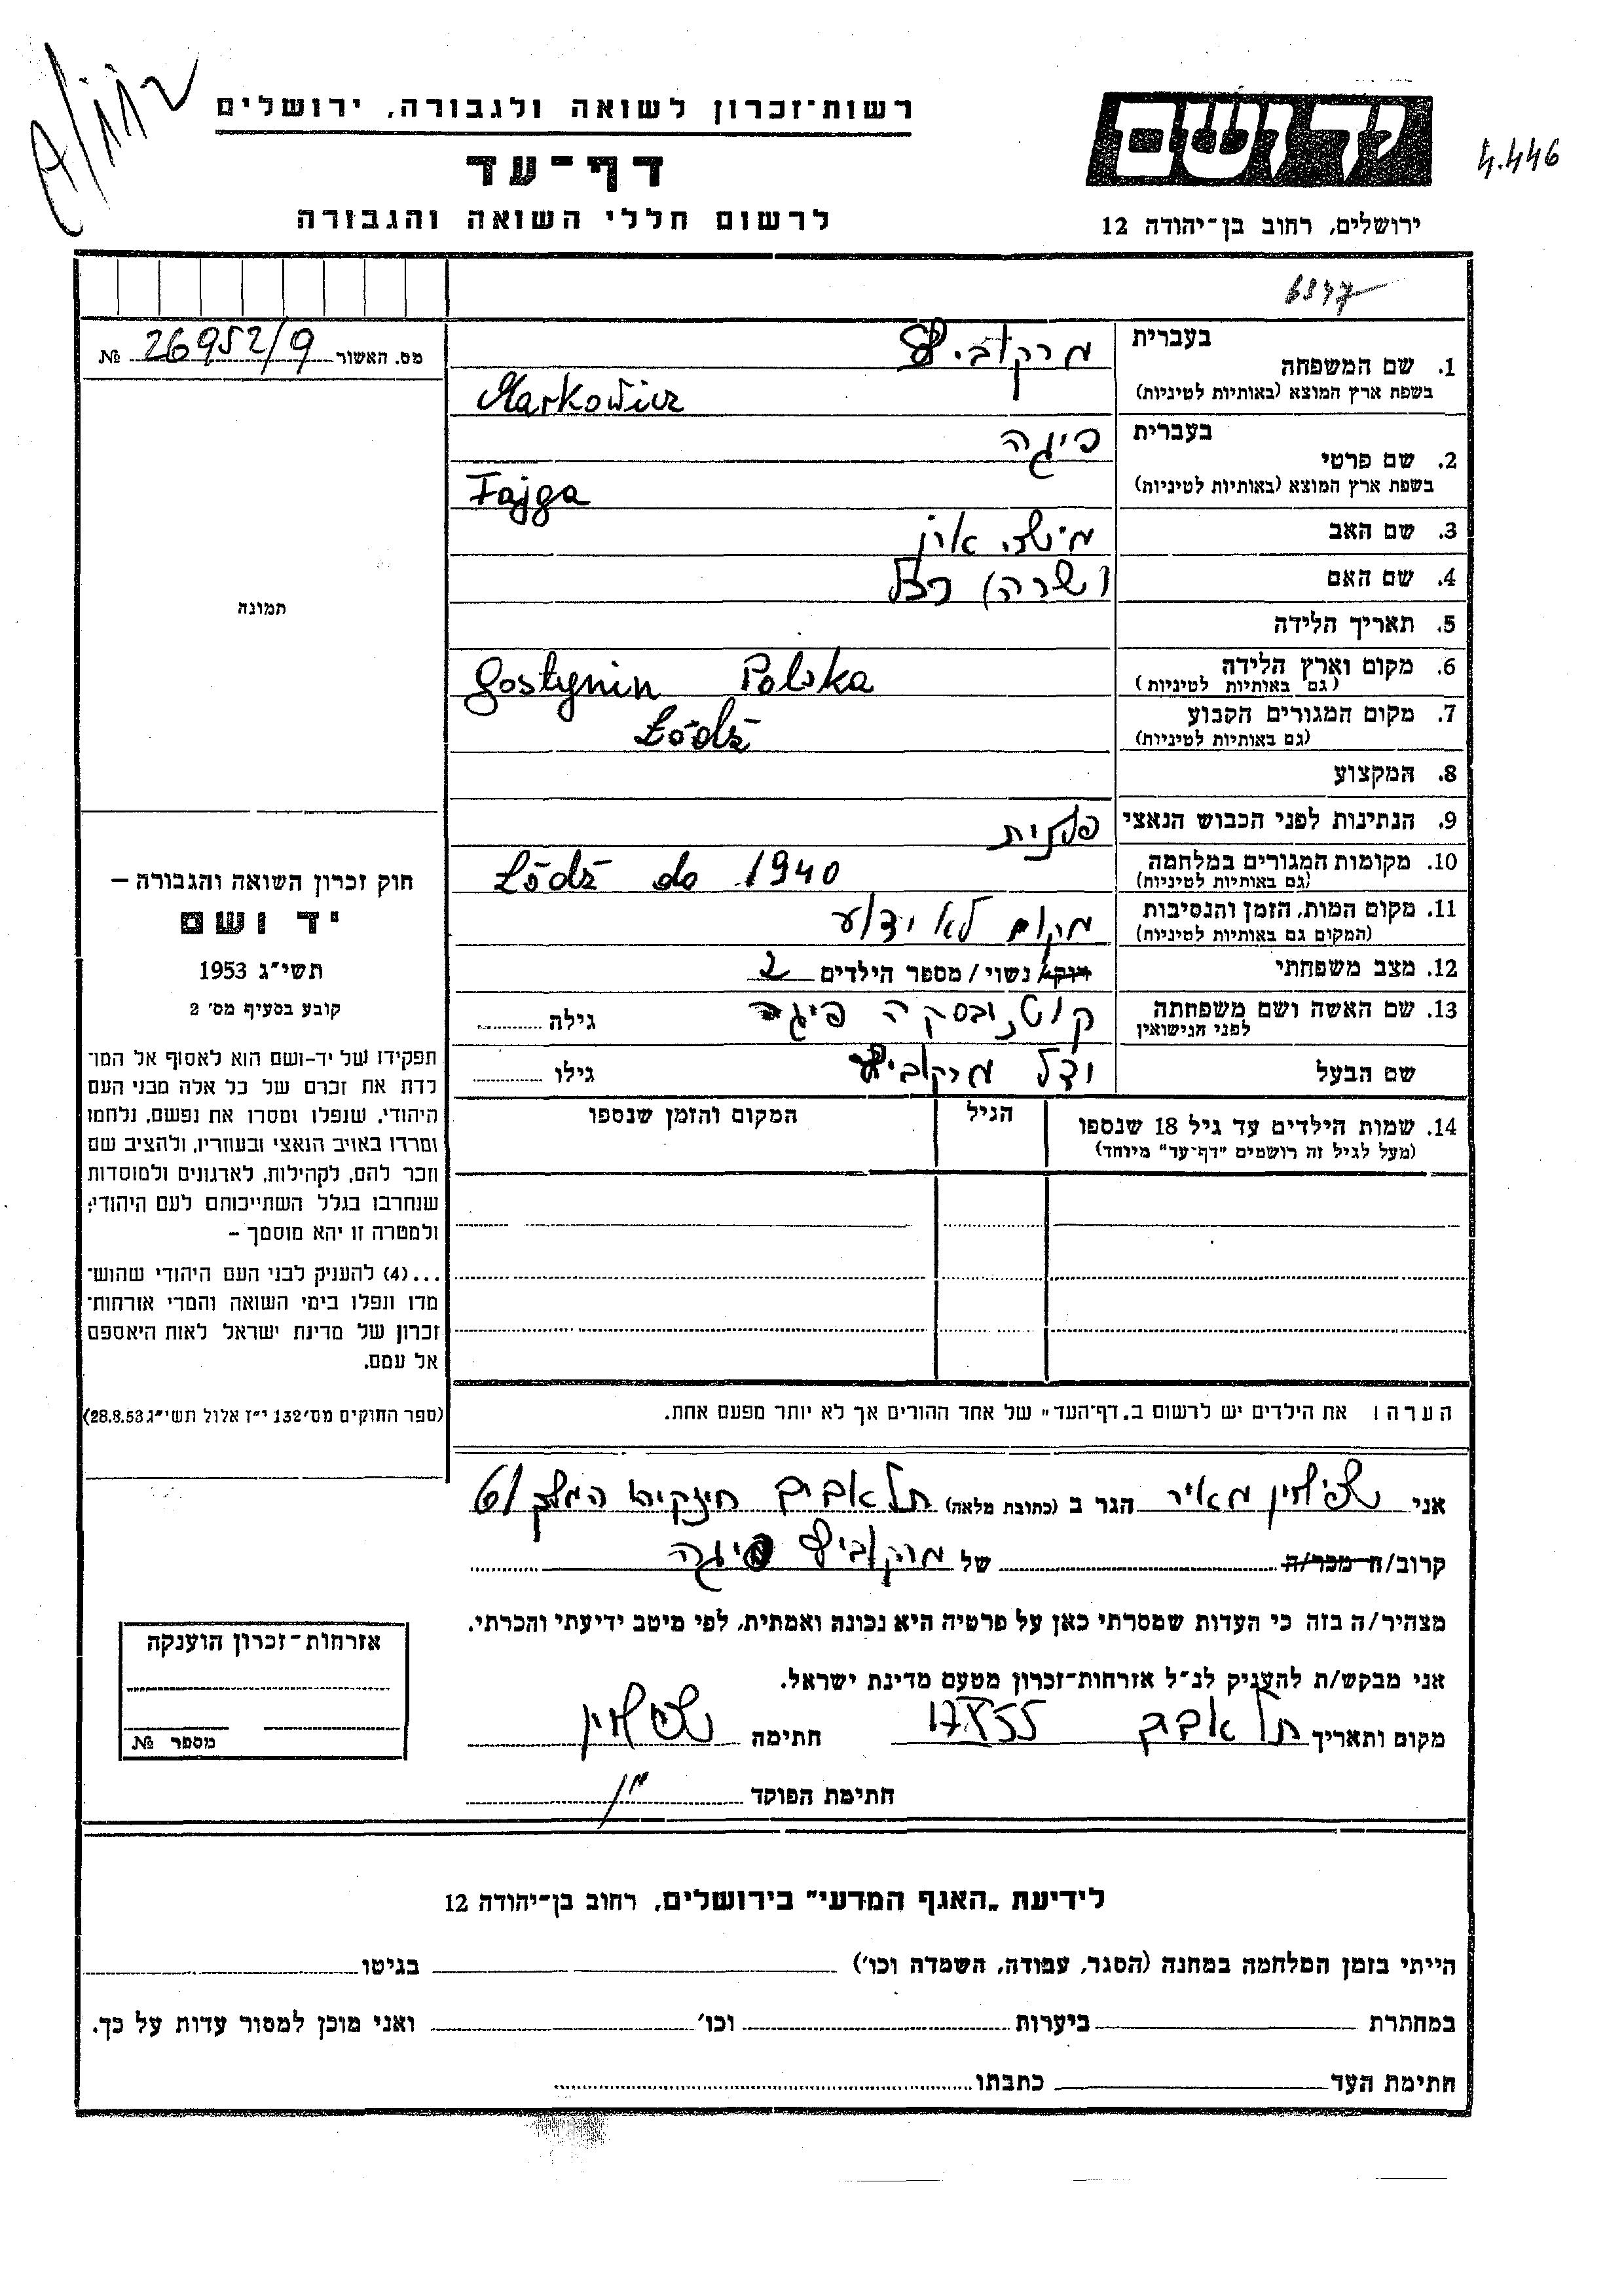 רשות־זכרון לשואה ולגבורה, ירושלים
דף־עד
לרשום חללי השואה והגבורה
יד ושם
ירושלים, רחוב בן־יהודה 12
4.446
מס. האשור 26952/9 №
בעברית מרקוביץ
1. שם המשפחה
בשפת ארץ המוצא (באותיות לטיניות) Markowicz
בעברית פיגה
2. שם פרטי
בשפת ארץ המוצא (באותיות לטיניות) Fajga
3. שם האב
4. שם האם (שרה)
5. תאריך הלידה
6. מקום וארץ הלידה Gostynin Polska
(גם באותיות לטיניות)
7. מקום המגורים הקבוע Łódź
(גם באותיות לטיניות)
8. המקצוע
9. הנתינות לפני הכבוש הנאצי פולנית
10. מקומות המגורים במלחמה Łódź do 1940
(גם באותיות לטיניות)
11. מקום המות, הזמן והנסיבות מקום לא ידוע
(המקום גם באותיות לטיניות)
12. מצב משפחתי רוק/ נשוי / מספר הילדים 2
13. שם האשה ושם משפחתה פיגה גילה
לפני הנישואין
שם הבעל מרקוביץ גילו
14. שמות הילדים עד גיל 18 שנספו הגיל המקום והזמן שנספו
(מעל לגיל זה רושמים "דף־עד" מיוחד)
הערה: את הילדים יש לרשום ב„דף־העד" של אחד ההורים אך לא יותר מפעם אחת.
תמונה
חוק זכרון השואה והגבורה –
יד ושם
תשי״ג 1953
קובע בסעיף מס׳ 2
תפקידו של יד-ושם הוא לאסוף אל המו־
לדת את זכרם של כל אלה מבני העם
היהודי, שנפלו ומסרו את נפשם, נלחמו
ומרדו באויב הנאצי ובעוזריו, ולהציב שם
וזכר להם, לקהילות, לארגונים ולמוסדות
שנחרבו בגלל השתייכותם לעם היהודי;
ולמטרה זו יהא מוסמך –
...(4) להעניק לבני העם היהודי שהוש־
מדו ונפלו בימי השואה והמרי אזרחות־
זכרון של מדינת ישראל לאות היאספם
אל עמם.
(ספר החוקים מס׳ 132 י״ז אלול תשי״ג 28.8.53)
אני מאיר הגר ב (כתובת מלאה) תל אביב חיזקיהו המלך 61
קרוב/ה מכר/ה של מרקוביץ פיגה
מצהיר/ה בזה כי העדות שמסרתי כאן על פרטיה היא נכונה ואמתית, לפי מיטב ידיעתי והכרתי.
אני מבקש/ת להעניק לנ״ל אזרחות־זכרון מטעם מדינת ישראל.
מקום ותאריך תל אביב 17 X 55 חתימה
חתימת הפוקד
אזרחות־זכרון הוענקה
מספר №
לידיעת „האגף המדעי" בירושלים, רחוב בן־יהודה 12
הייתי בזמן המלחמה במחנה (הסגר, עבודה, השמדה וכו׳) בגיטו
במחתרת ביערות וכו׳ ואני מוכן למסור עדות על כך.
חתימת העד כתבתו